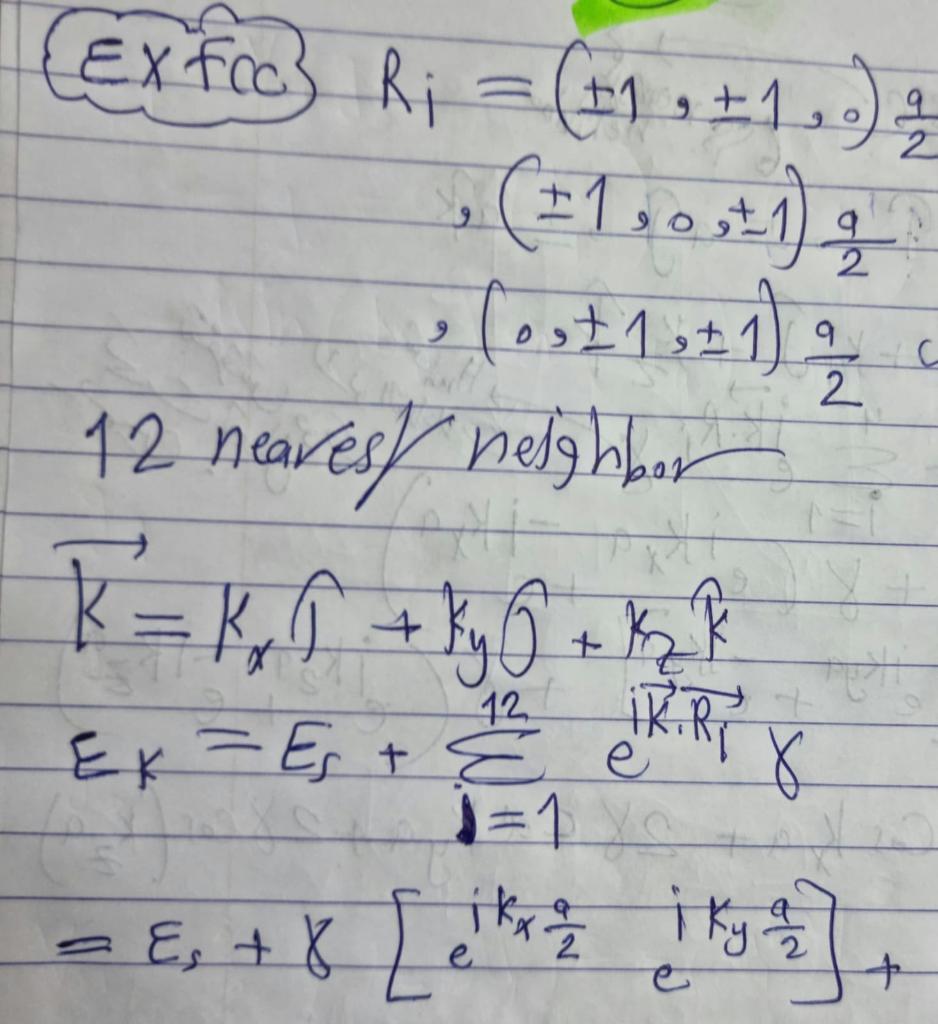 Ex Fcc Ri = (±1, ±1, 0) a/2
, (±1, 0, ±1) a/2
, (0, ±1, ±1) a/2
12 nearest neighbor
K⃗ = Kx î + Ky ĵ + Kz k̂
EK = Es + Σ_{i=1}^{12} e^{iK⃗.R⃗i} γ
= Es + γ [ e^{iKx a/2} e^{iKy a/2} ] +